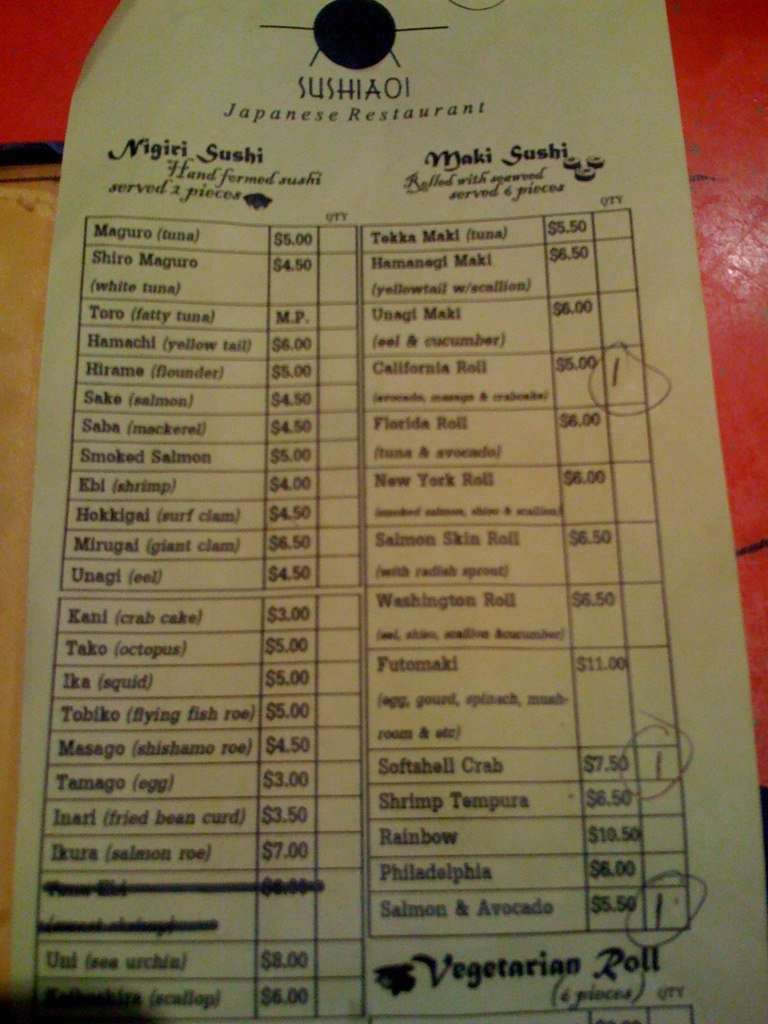 SUSHIAOI
Japanese Restaurant
Nigiri Sushi
Hand formed sushi
served 2 pieces
QTY
Maguro (tuna) $5.00
Shiro Maguro $4.50
(white tuna)
Toro (fatty tuna) M.P.
Hamachi (yellow tail) $6.00
Hirame (flounder) $5.00
Sake (salmon) $4.50
Saba (mackerel) $4.50
Smoked Salmon $5.00
Ebi (shrimp) $4.00
Hokkigai (surf clam) $4.50
Mirugai (giant clam) $6.50
Unagi (eel) $4.50
Kani (crab cake) $3.00
Tako (octopus) $5.00
Ika (squid) $5.00
Tobiko (flying fish roe) $5.00
Masago (shishamo roe) $4.50
Tamago (egg) $3.00
Inari (fried bean curd) $3.50
Ikura (salmon roe) $7.00
Uni (sea urchin) $8.00
(scallop) $6.00
Maki Sushi
Rolled with seaweed
served 6 pieces
QTY
Tekka Maki (tuna) $5.50
Hamanegi Maki $6.50
(yellowtail w/scallion)
Unagi Maki $6.00
(eel & cucumber)
California Roll $5.00 1
(avocado, masago & crabcake)
Florida Roll $6.00
(tuna & avocado)
New York Roll $6.00
(smoked salmon, shiso & scallion)
Salmon Skin Roll $6.50
(with radish sprout)
Washington Roll $6.50
(eel, shiso, scallion &cucumber)
Futomaki $11.00
(egg, gourd, spinach, mush-
room & etc)
Softshell Crab $7.50 1
Shrimp Tempura $6.50
Rainbow $10.50
Philadelphia $6.00
Salmon & Avocado $5.50 1
Vegetarian Roll
(6 pieces) QTY